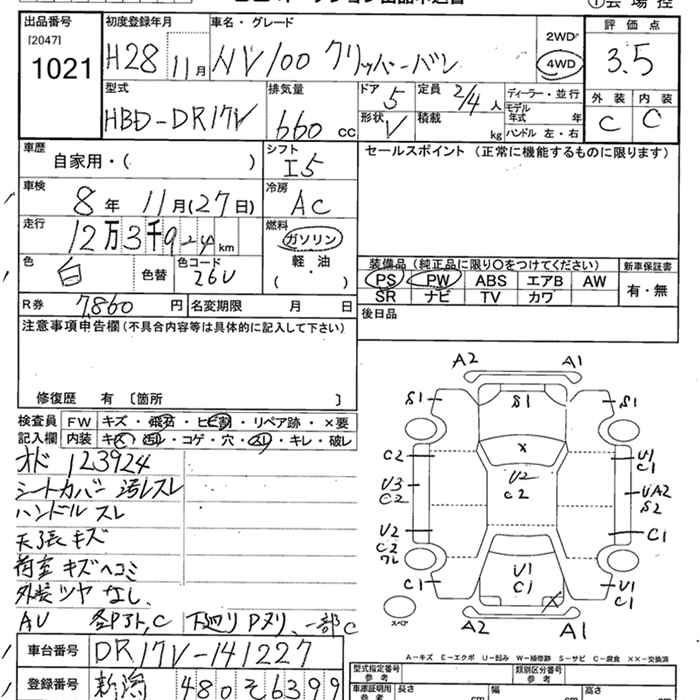 出品番号
[2047]
1021
初度登録年月
H28 11月
車名・グレード
NV100 クリッパーバン
2WD
4WD
評価点
3.5
外装 内装
C C
型式
HBD-DR17V
排気量
660 cc
ドア 5
形状 V
定員 2/4 人
積載 kg
ディーラー・並行
モデル年式 年
ハンドル 左・右
車歴
自家用・( )
シフト
I5
車検
8年 11月(27日)
冷房
AC
走行
12万3千924km
燃料
ガソリン
軽・油
( )
色
白
色替
色コード
26U
R券 7,860円
名変期限 月 日
セールスポイント (正常に機能するものに限ります)
装備品 (純正品に限り○をつけてください)
新車保証書
PS PW ABS エアB AW
SR ナビ TV カワ
有・無
後日品
注意事項申告欄(不具合内容等は具体的に記入して下さい)
修復歴 有 〔箇所 〕
検査員記入欄
FW キズ・飛石・ヒビ割・リペア跡・×要
内装 キズ・汚れ・コゲ・穴・スリ・キレ・破レ
オド 123924
シートカバー 汚レスレ
ハンドル スレ
天張キズ
荷室 キズヘコミ
外装 ツヤ なし、
下廻り Pヌリ、一部C
A2 A1
S1 S1 S1
X
C2 U2 C2 U1 C1
U3 C2 UA2 S2
U2 C2 ワレ C1
C1 U1 C1 U1 C1
X
スペア
A2 A1
車台番号 DR17V-141227
登録番号 新潟 480 そ6399
A-キズ E-エクボ U-凹み W-補修跡 S-サビ C-腐食 XX-交換済
型式指定番号
参考
類別区分番号
参考
車庫証明用
参考
長さ cm
幅 cm
高さ cm